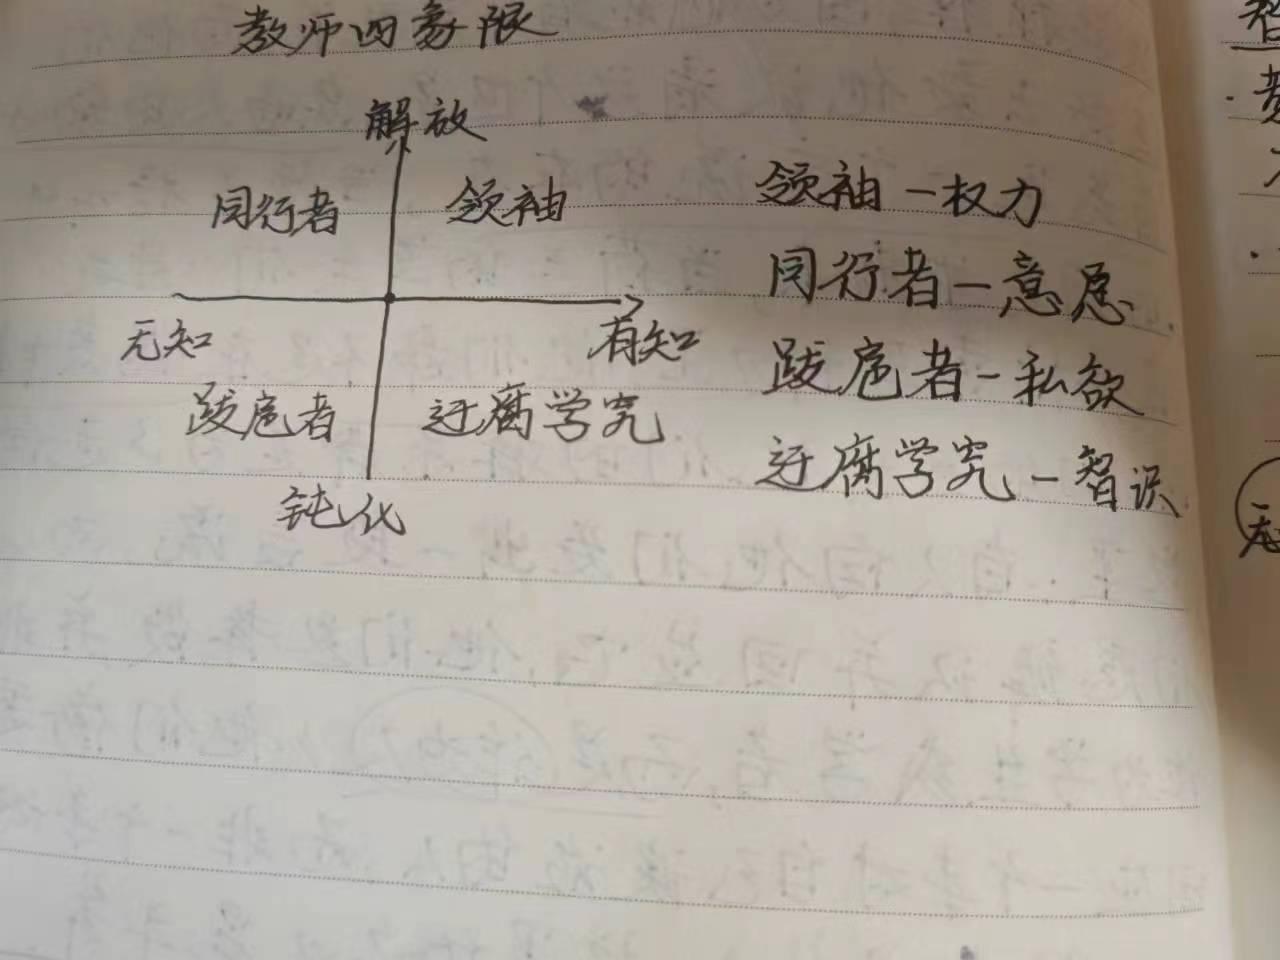 教师四象限
解放
同行者 领袖
无知 有知
跋扈者 迂腐学究
钝化
领袖-权力
同行者-意愿
跋扈者-私欲
迂腐学究-智识